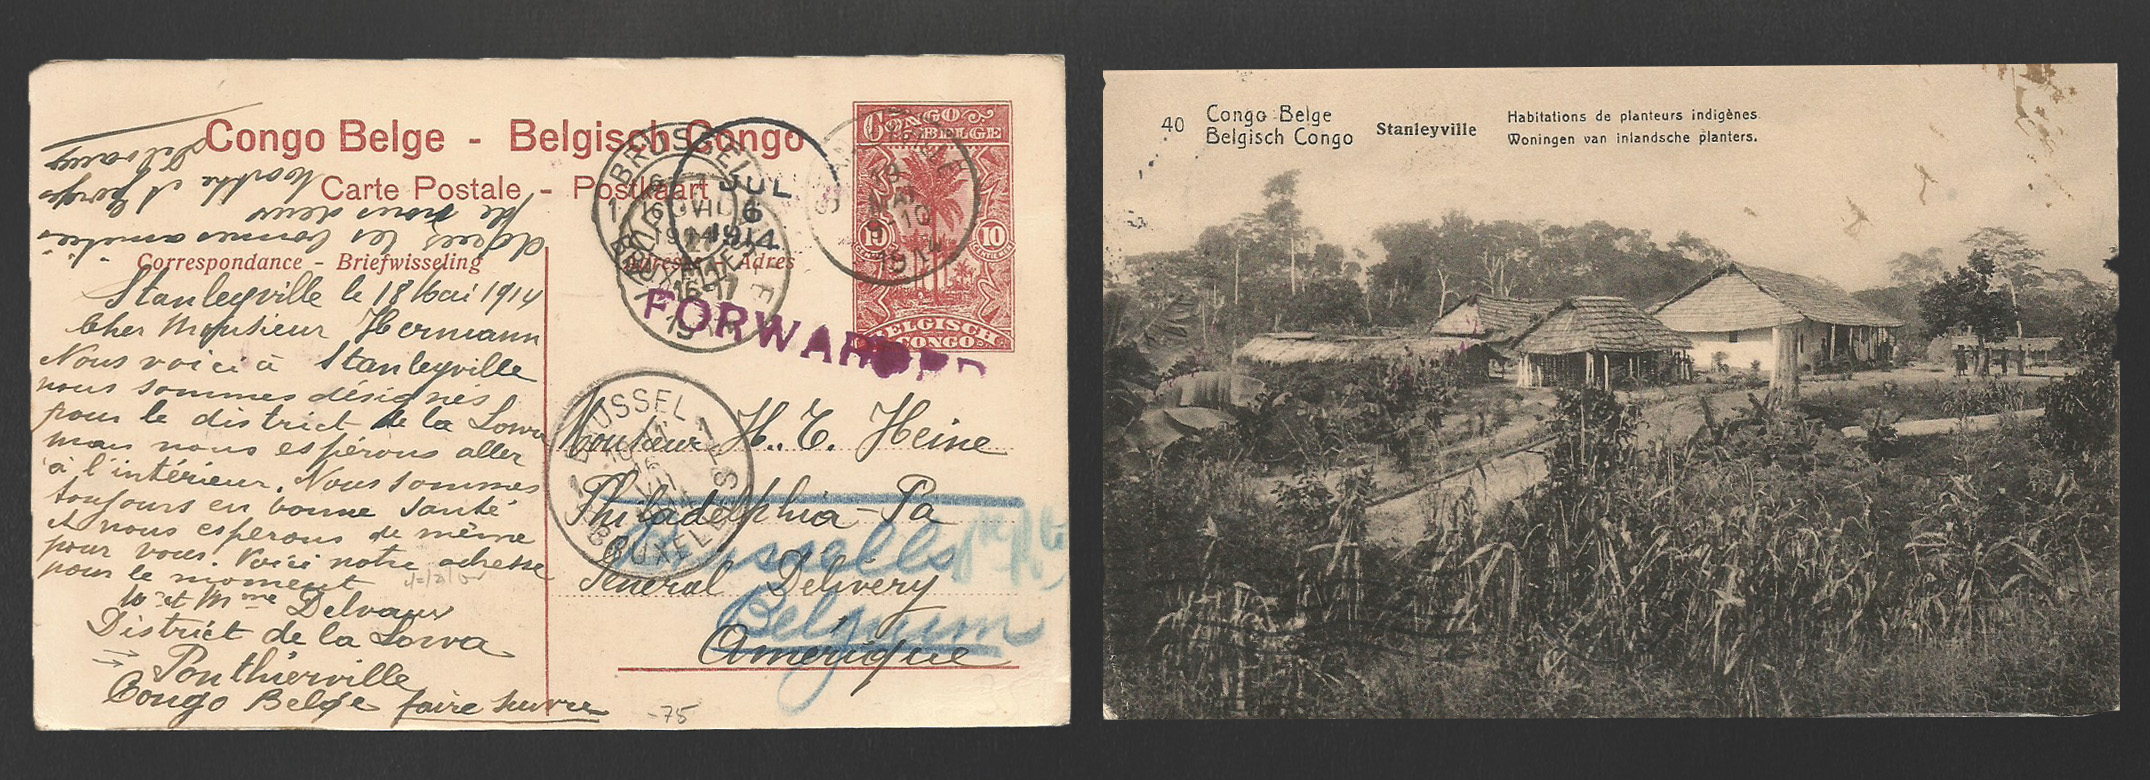 Congo Belge - Belgisch Congo
Carte Postale - Postkaart
Correspondance - Briefwisseling
Adresse - Adres
CONGO
BELGE
10 10
BELGISCH
CONGO
JUL
6
1914
FORWARDED
BRUSSEL
BRUXELLES
Stanleyville le 18 Mai 1914
Cher Monsieur Hermann
Nous voici à Stanleyville
nous sommes désignés
pour le district de la Lowa
mais nous espérons aller
à l'intérieur. Nous sommes
toujours en bonne santé
et nous esperons de même
pour vous. Voici notre adresse
pour le moment
Mr et Mme Delvaux
District de la Lowa
Ponthierville
Congo Belge faire suivre
bonnes amitiés
de nous deux
Marthe et Georges
Delvaux
Monsieur H. C. Heine
Philadelphia - Pa
General Delivery
Amérique
Brussells
Belgium
-75
40 Congo Belge
Belgisch Congo
Stanleyville
Habitations de planteurs indigènes.
Woningen van inlandsche planters.